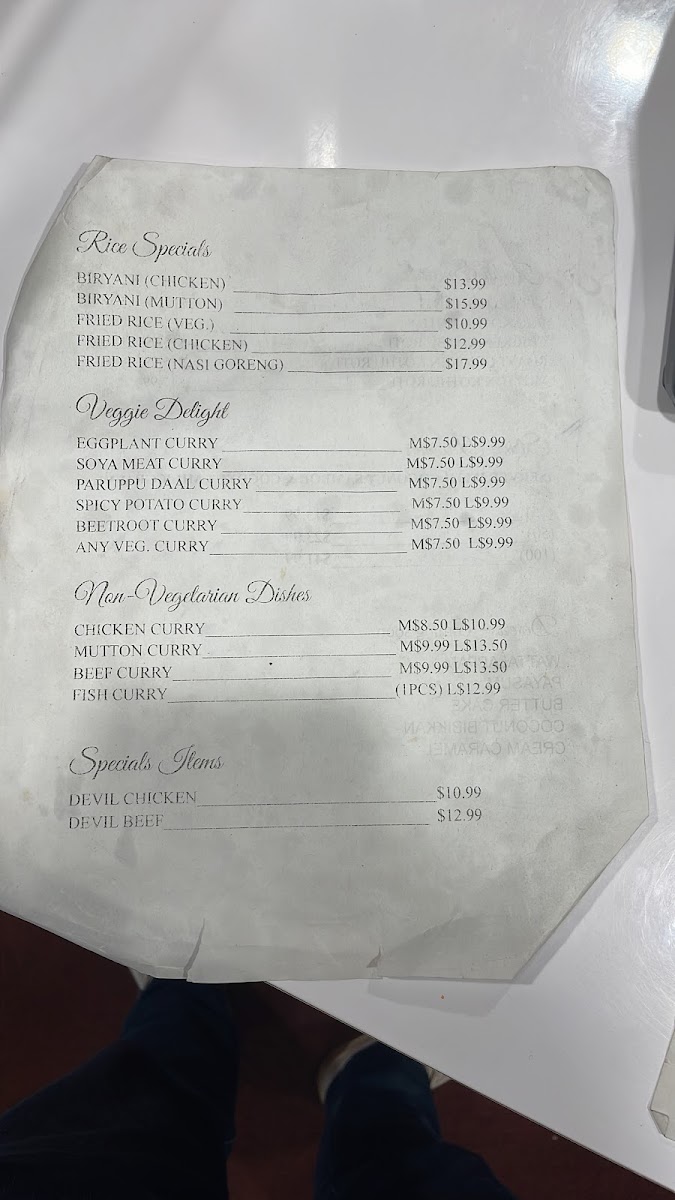 Rice Specials
BIRYANI (CHICKEN) $13.99
BIRYANI (MUTTON) $15.99
FRIED RICE (VEG.) $10.99
FRIED RICE (CHICKEN) $12.99
FRIED RICE (NASI GORENG) $17.99
Veggie Delight
EGGPLANT CURRY M$7.50 L$9.99
SOYA MEAT CURRY M$7.50 L$9.99
PARUPPU DAAL CURRY M$7.50 L$9.99
SPICY POTATO CURRY M$7.50 L$9.99
BEETROOT CURRY M$7.50 L$9.99
ANY VEG. CURRY M$7.50 L$9.99
Non-Vegetarian Dishes
CHICKEN CURRY M$8.50 L$10.99
MUTTON CURRY M$9.99 L$13.50
BEEF CURRY M$9.99 L$13.50
FISH CURRY (1PCS) L$12.99
BUTTER CAKE
COCONUT BIBIKKAN
CREAM CARAMEL
Specials Items
DEVIL CHICKEN $10.99
DEVIL BEEF $12.99